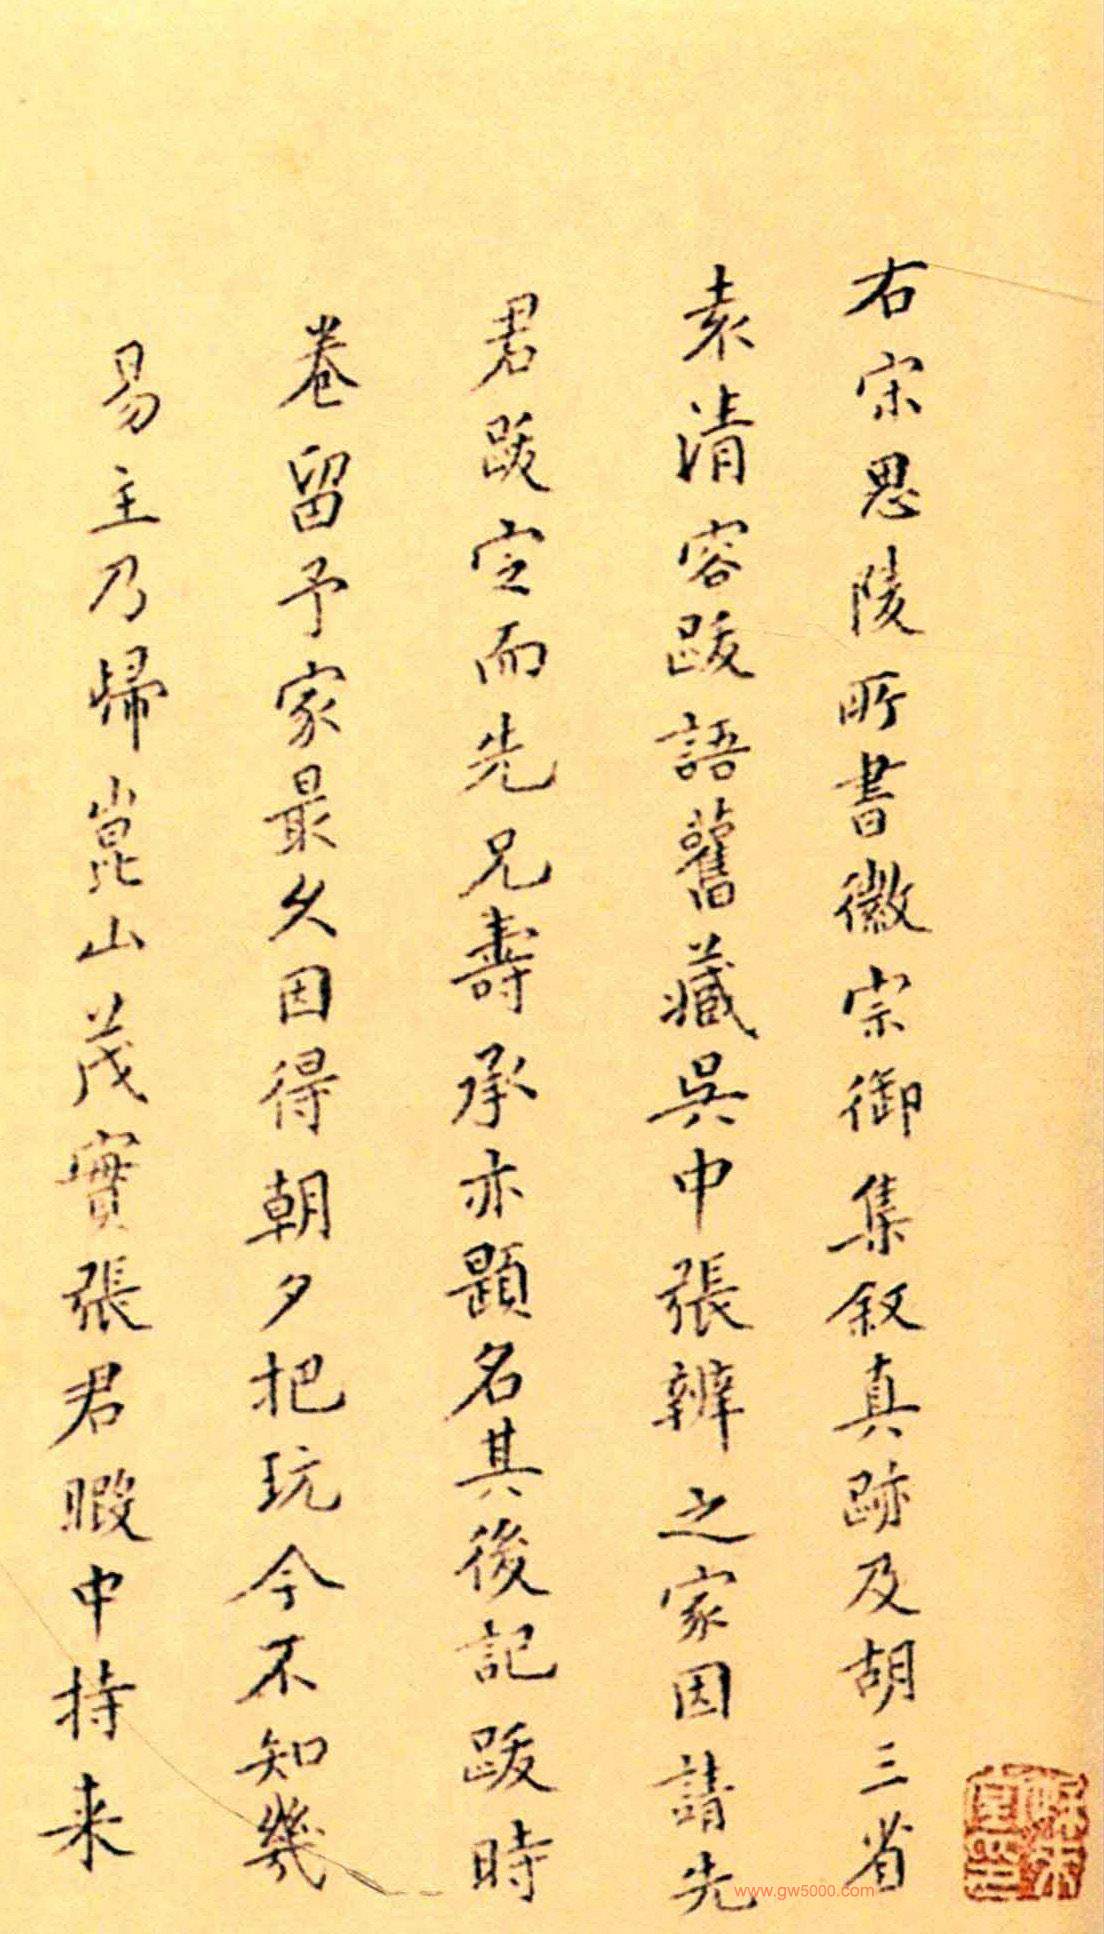 右宋思陵所書徽宗御集叙真跡及胡三省
袁清容跋語舊藏吳中張辨之家因請先
君跋定而先兄壽承亦題名其後記跋時
卷留予家最久因得朝夕把玩今不知幾
易主乃歸崑山茂實張君暇中持来
www.gw5000.com